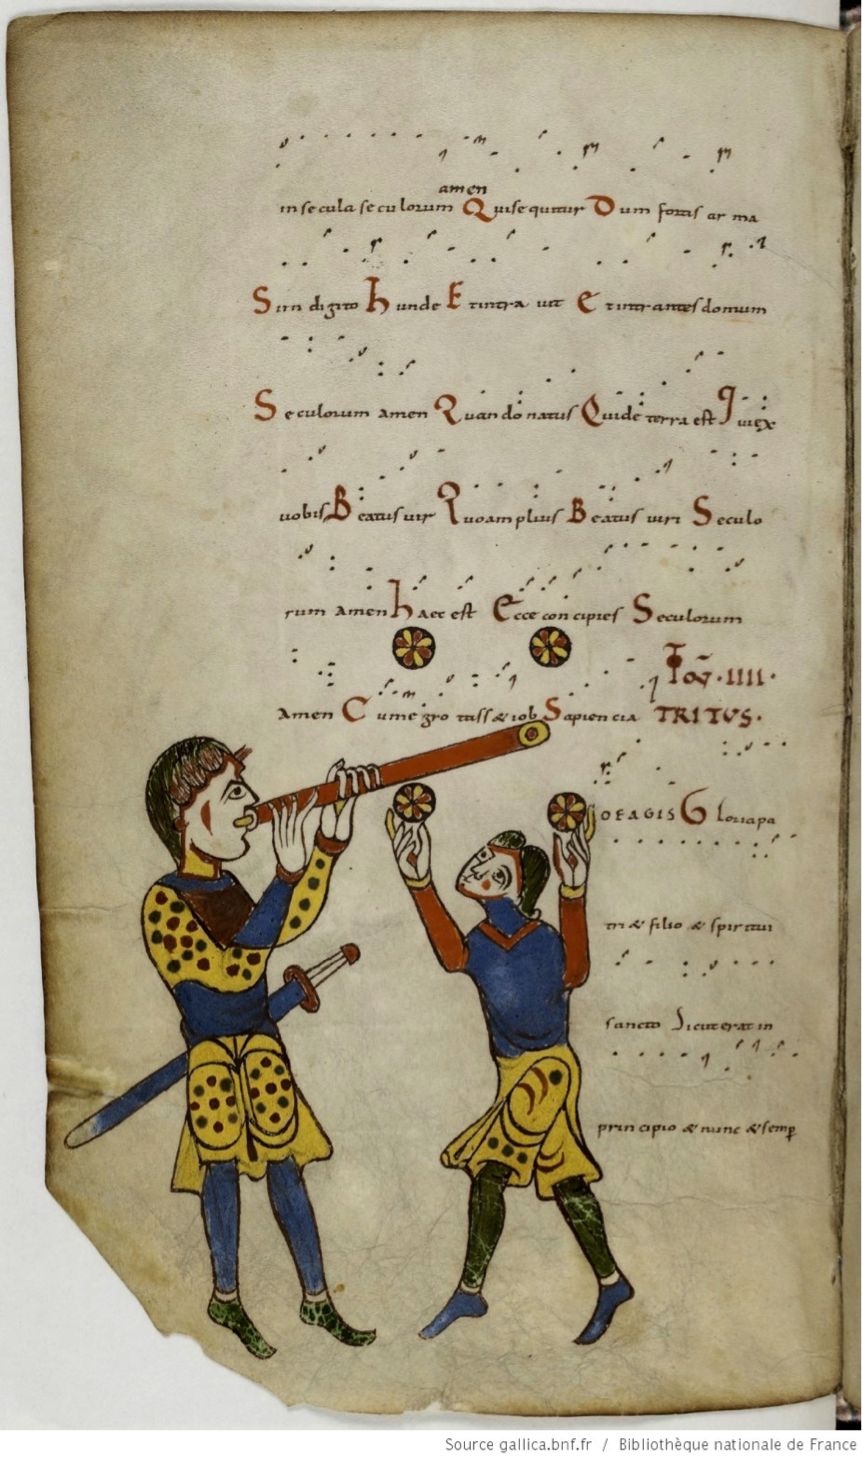 amen
in secula seculorum Quisequitur Dum fortis arma
Sin digito hunde Et intra uit Et intrantes domum
Seculorum amen Quando natus Quide terra est Quiex
uobis Beatus uir Quoamplius Beatus uiri Seculo
rum amen haec est Ecce concipies Seculorum
amen Cumegro tass& iob Sapiencia TON·IIII·
TRITVS·
OEAGIS Gloriapa
tri & filio & spiritui
sancto Sicuterat in
principio & nunc & semp
Source gallica.bnf.fr / Bibliothèque nationale de France